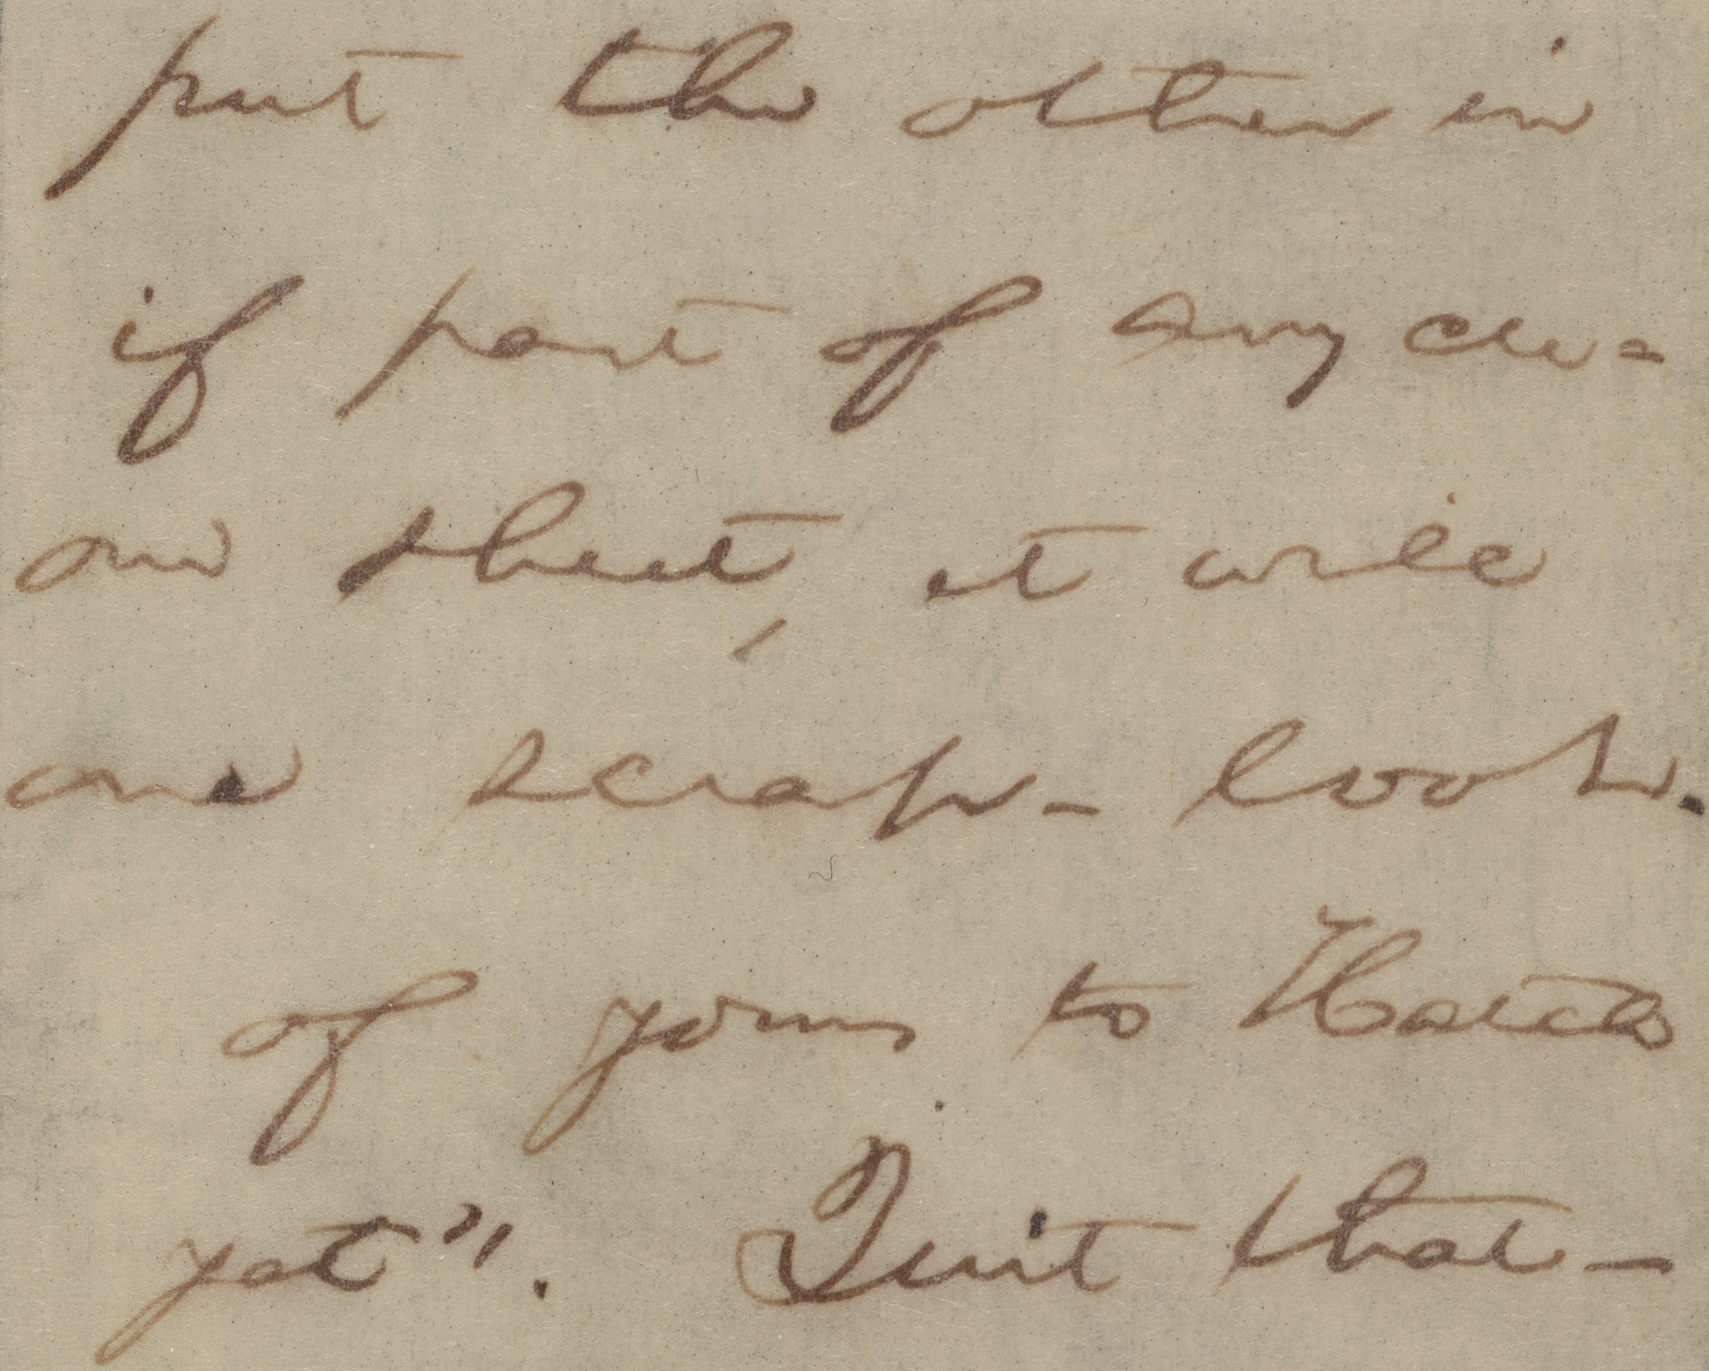 put the other in
if part of any cu=
on sheet, it will
one scrap-book.
of yours to Hatch
yet". Quit that—